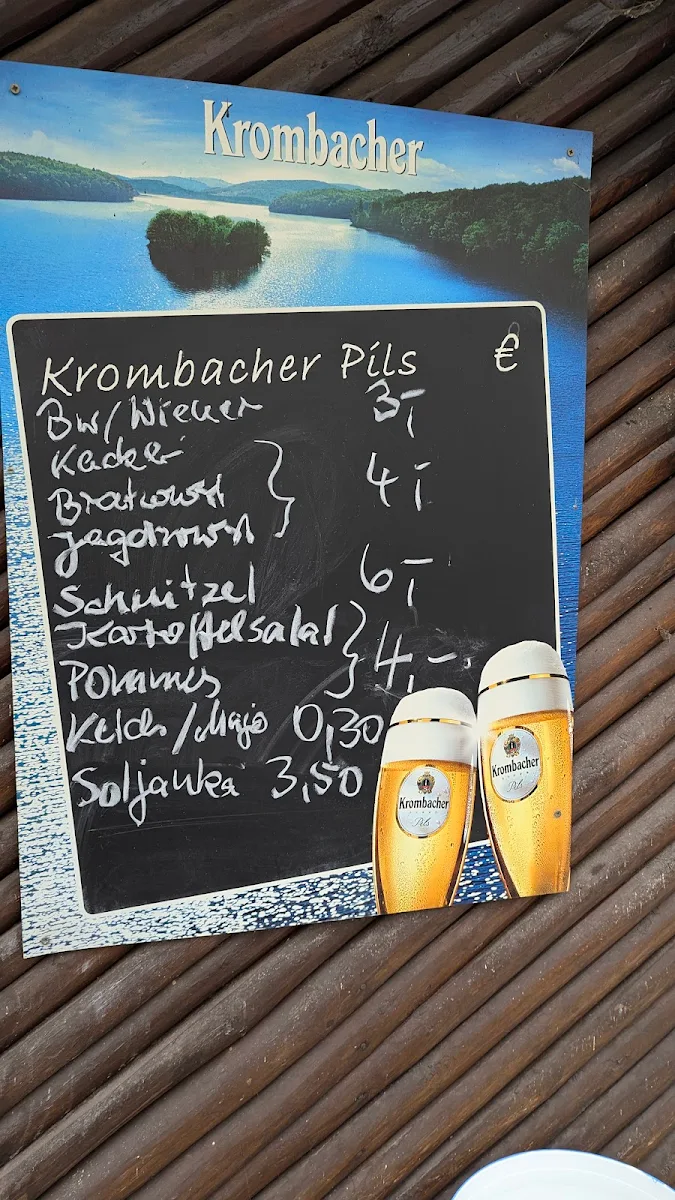 Krombacher
Krombacher Pils €
Bw/Wiener 3,-
Bratwurst
Jagdwurst } 4,-
Schnitzel 6,-
Kartoffelsalat
Pommes } 4,-
Ketch/Majo 0,30
Soljanka 3,50
Krombacher
Pils
Krombacher
Pils